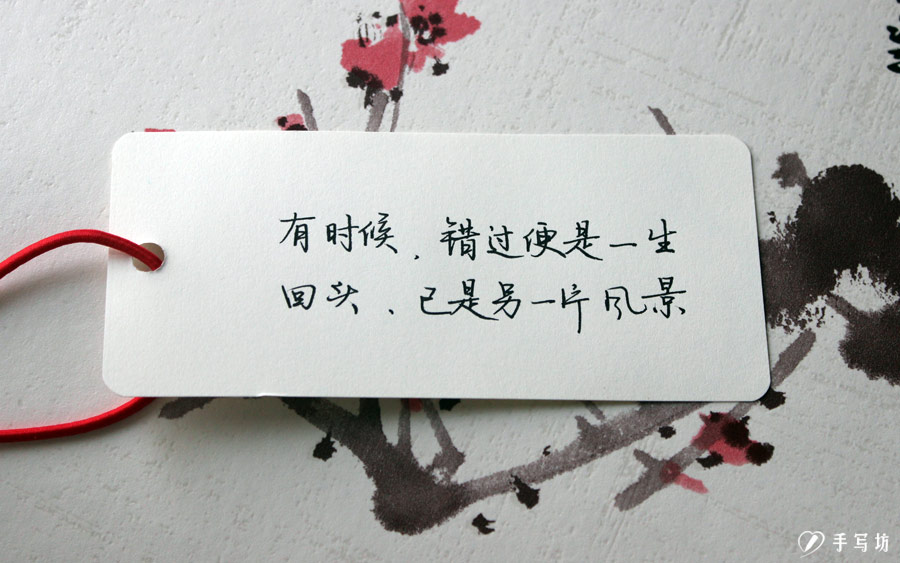 有时候，错过便是一生
回头、已是另一片风景
手写坊